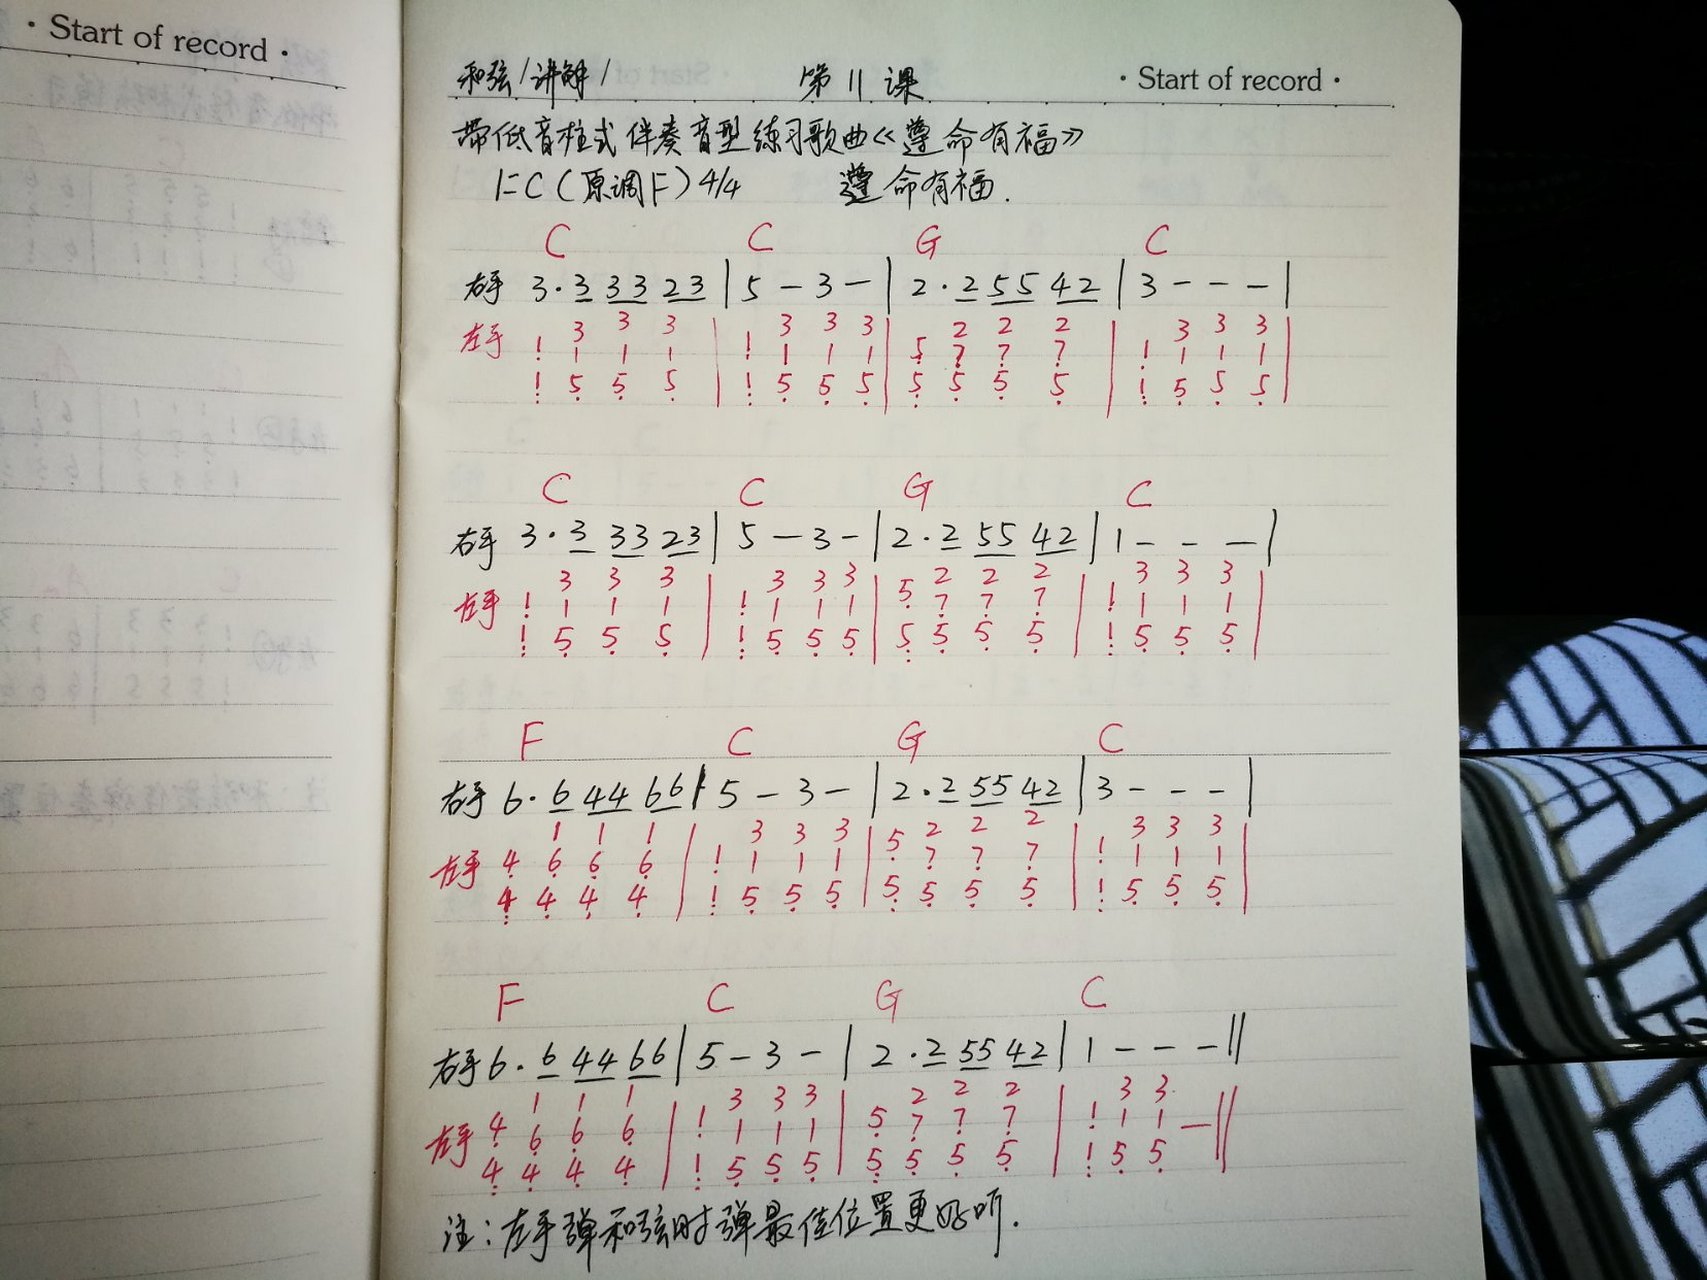 · Start of record ·
和弦/讲解/ 第11课 · Start of record ·
带低音柱式伴奏音型练习歌曲《遵命有福》
1=C(原调F)4/4 遵命有福.
C C G C
右手 3·3 33 23 | 5 - 3 - | 2·2 55 42 | 3 - - - |
3 3 3 | 3 3 3 | 2 2 2 | 3 3 3 |
左手 1 1 1 1 | 1 1 1 1 | 5 7 7 7 | 1 1 1 1 |
1 5 5 5 | 1 5 5 5 | 5 5 5 5 | 1 5 5 5 |
C C G C
右手 3·3 33 23 | 5 - 3 - | 2·2 55 42 | 1 - - - |
3 3 3 | 3 3 3 | 2 2 2 | 3 3 3 |
左手 1 1 1 1 | 1 1 1 1 | 5 7 7 7 | 1 1 1 1 |
1 5 5 5 | 1 5 5 5 | 5 5 5 5 | 1 5 5 5 |
F C G C
右手 6·6 44 66 | 5 - 3 - | 2·2 55 42 | 3 - - - |
1 1 1 | 3 3 3 | 2 2 2 | 3 3 3 |
左手 4 6 6 6 | 1 1 1 1 | 5 7 7 7 | 1 1 1 1 |
4 4 4 4 | 1 5 5 5 | 5 5 5 5 | 1 5 5 5 |
F C G C
右手 6·6 44 66 | 5 - 3 - | 2·2 55 42 | 1 - - - ‖
1 1 1 | 3 3 3 | 2 2 2 | 3 3
左手 4 6 6 6 | 1 1 1 1 | 5 7 7 7 | 1 1 1 - ‖
4 4 4 4 | 1 5 5 5 | 5 5 5 5 | 1 5 5
注:左手弹和弦时弹最佳位置更好听.